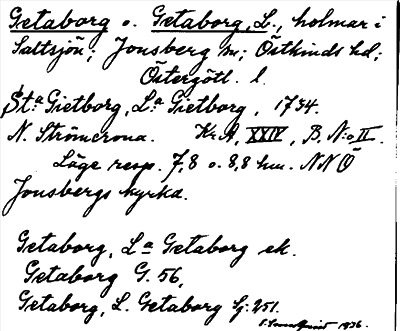 Getaborg o. Getaborg, L., holmar i
Saltsjön; Jonsberg sn; Östkinds hd;
Östergötl. l.
St:a Gietborg, L:a Gietborg, 1734.
N. Strömcrona. Kr. A, XXIV, B, N:o II.
Läge resp. 7,8 o. 8,8 km. NNO
Jonsbergs kyrka.
Getaborg, La Getaborg ek.
Getaborg G. 56,
Getaborg, L. Getaborg Sj. 251.
1936.